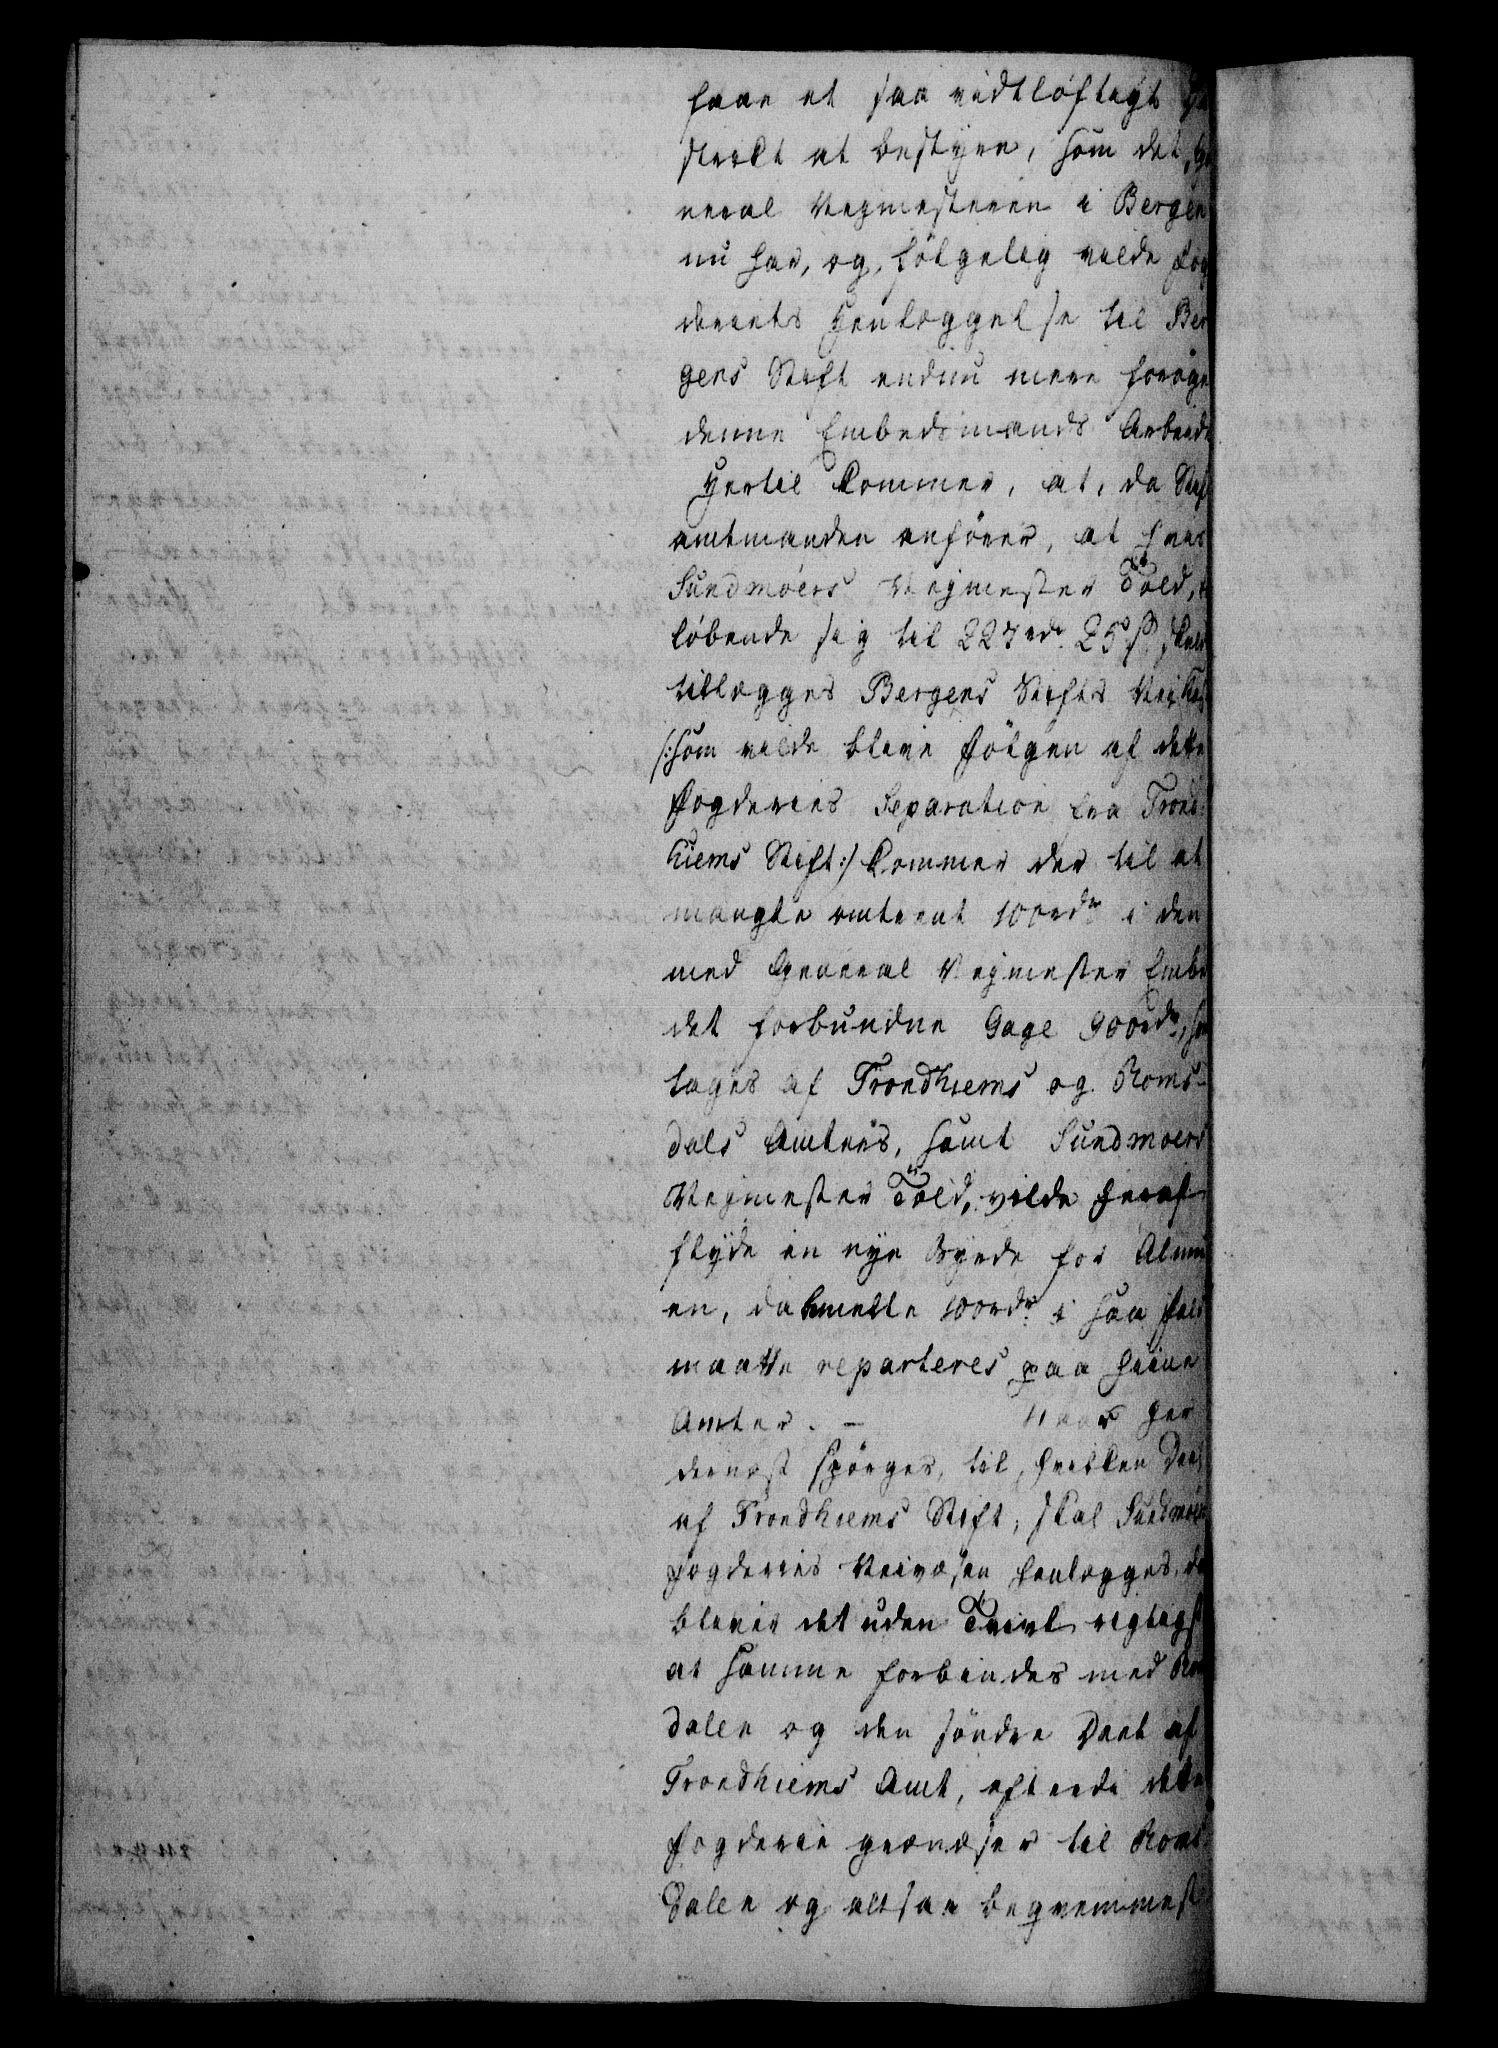 faae et saa vidtløftigt Di
strict at bestyre, som det, Ge
neral Vejmesteren i Bergen
nu har, og følgelig vilde Fog
deriets Henlæggelse til Ber
gens Stift endnu mere forøge
denne Embedsmands Arbeide
Hertil kommer, at, da Stift
amtmanden anfører, at hvis
Sundmøers Vejmester Told,
løbende sig til 227 rd. 25 s., skal
tillægges Bergens Stifts Vei
/:som vilde blive Følgen af dette
Fogderies Separation fra Trond
hiems Stift:/ kommer der til at
mangle omtrent 100 rdr i den
med General Vejmester Embe
det forbundne Gage 900 rdr, som
tages af Trondhiems og Roms-
dals Amters, samt Sundmøers
Vejmester Told, vilde heraf
flyde en nye Byrde for Almu
en, da bemelte 100 rdr i saa Fald
maatte reparteres paa hine
Amter. - Naar her
dernæst spørges, til hvilken Deel
af Trondhiems Stift, skal Sundmøers
Fogderies Veivæsen henlægges, da
bliver det uden Tvivl rigtigst
at samme forbindes med Roms
dalen og den søndre Deel af
Trondhiems Amt, efterdi dette
Fogderie grændser til Roms
dalen og altsaa beqvemmest